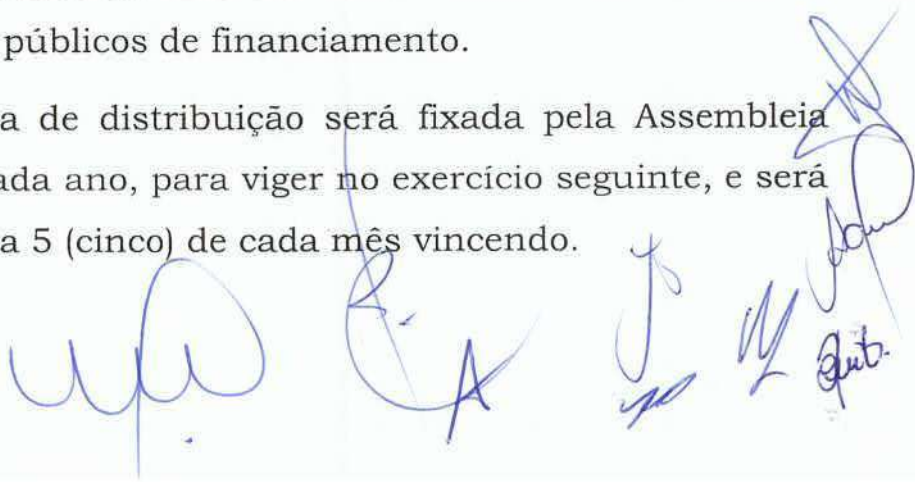 públicos de financiamento.
a de distribuição será fixada pela Assembleia
ada ano, para viger no exercício seguinte, e será
a 5 (cinco) de cada mês vincendo.